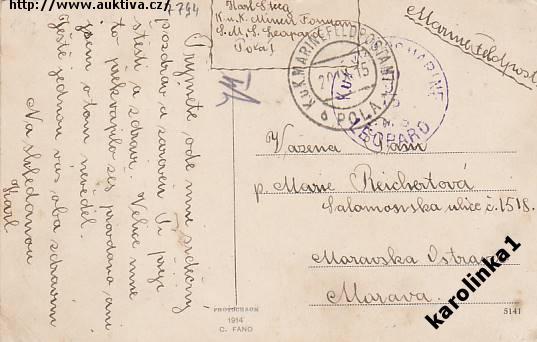 http://www.auktiva.cz/
2794
Karl Steeg
K.u.K. Minen Formam
S.M.S. Leopard
Pola 1
Marine feldpost
K.U.K. MARINEFELDPOSTAMT
20.IX.15
POLA
LEOPARD
Přijmete ode mne srdečný
pozdrav a zaroven Ti přeji
stěsti a zdravi. Velice mne
to překvapilo žes provdana ani
jsem o tom nevěděl.
Ještě jednou vás oba zdravim
Na shledanou
Karl
Vazena Pani
p. Marie Reichertová
Salamounska ulice č. 1518.
Moravska Ostrava
Morava.
PHOTOCHROM
1914
C. FANO
5141
karolinka1